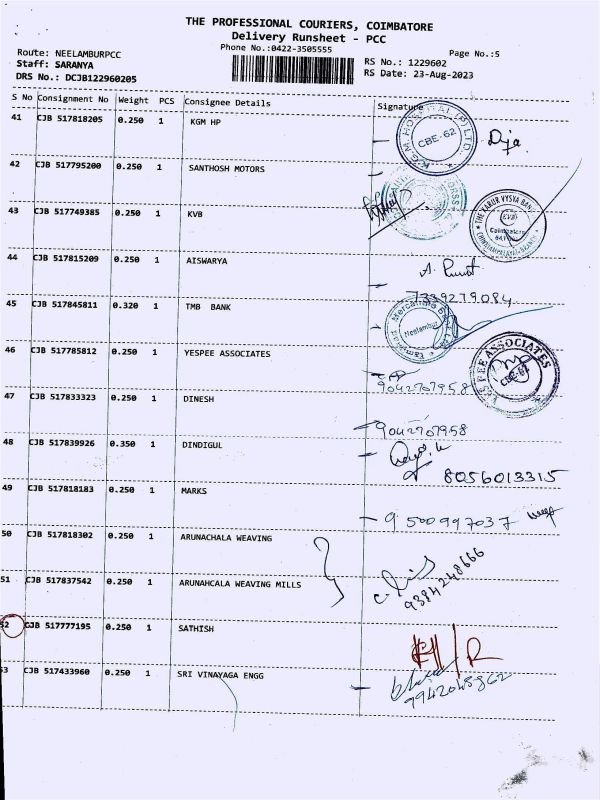 THE PROFESSIONAL COURIERS, COIMBATORE
Delivery Runsheet - PCC
Phone No.:0422-3505555
Page No.:5
Route: NEELAMBURPCC
Staff: SARANYA
DRS No.: DCJB122960205
RS No.: 1229602
RS Date: 23-Aug-2023
S No Consignment No Weight PCS Consignee Details Signature
41 CJB 517818205 0.250 1 KGM HP
KGM HOSPITAL (P) LTD.
CBE-62
42 CJB 517795200 0.250 1 SANTHOSH MOTORS
43 CJB 517749385 0.250 1 KVB
THE KARUR VYSYA BANK
KVB
Coimbatore
44 CJB 517815209 0.250 1 AISWARYA
7339279084
45 CJB 517845811 0.320 1 TMB BANK
Mercantile
Neelambur
46 CJB 517785812 0.250 1 YESPEE ASSOCIATES
YESPEE ASSOCIATES
CBE-62
9042707958
47 CJB 517833323 0.250 1 DINESH
9042707958
48 CJB 517839926 0.350 1 DINDIGUL
8056013315
49 CJB 517818183 0.250 1 MARKS
9500997037
50 CJB 517818302 0.250 1 ARUNACHALA WEAVING
51 CJB 517837542 0.250 1 ARUNAHCALA WEAVING MILLS
9384248666
52 CJB 517777195 0.250 1 SATHISH
53 CJB 517433960 0.250 1 SRI VINAYAGA ENGG
7942045862